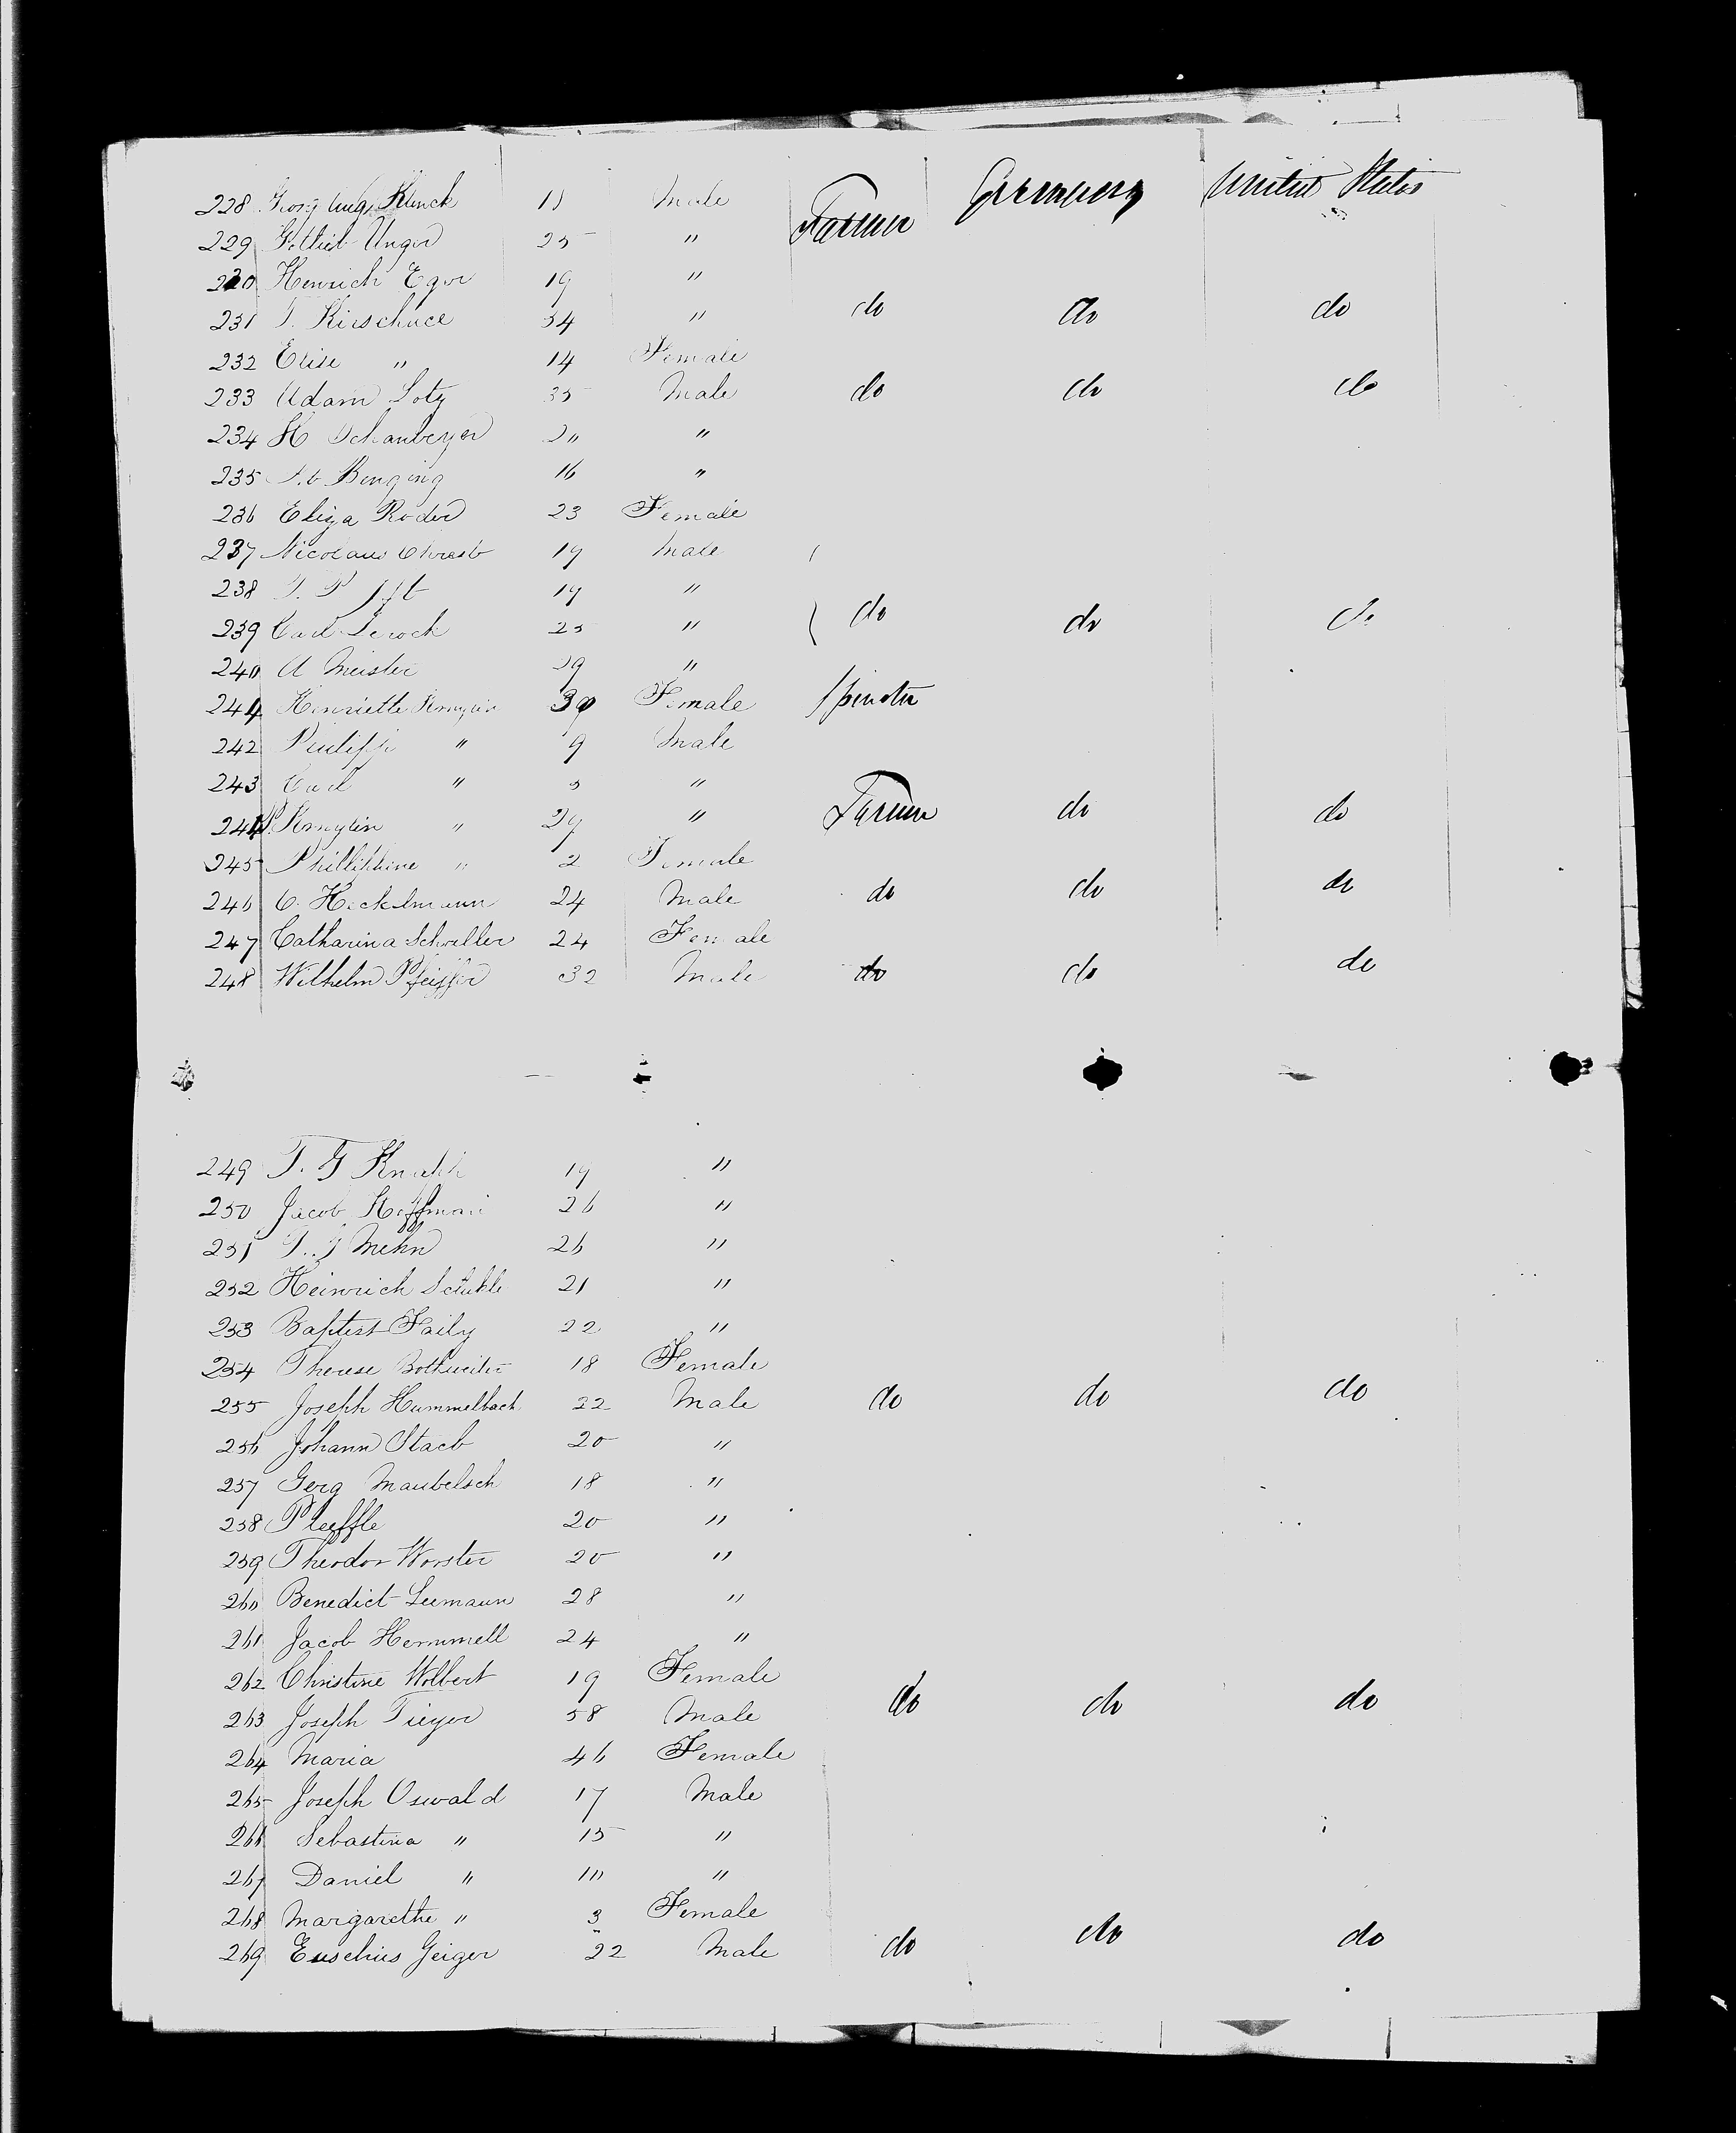 228 Georg Aug. Klunck 1 Male Farmer Germany United States
229 Gottlieb Unger 25 "
230 Henrich Eger 19 "
231 Kirschnee 34 " do do do
232 Elise " 14 Female
233 Adam Lotz 35 Male do do do
234 H Schanberger "
235 16 "
236 Eliza Roder 23 Female
237 Nicolaus Christ 19 Male
238 19 "
239 Carl 25 " do do do
240 A Meister "
241 Henriette 30 Female Spinster
242 Philipp " 9 Male
243 Carl " "
244 " 29 " Farmer do do
245 Phillippine " 2 Female
246 C. Heckelmann 24 Male do do do
247 Catharina Schaller 24 Female
248 Wilhelm Pfeiffer 32 Male do do do
249 T. G Knapp 19 "
250 Jacob Hoffman 26 "
251 Mehn 26 "
252 Heinrich 21 "
253 Baptist Faily 22 "
254 Therese 18 Female
255 Joseph Hummelbach 22 Male do do do
256 Johann Staeb 20 "
257 Gerg Maubelsch 18 "
258 Pleffle 20 "
259 Theodor Worster 20 "
260 Benedict Leemann 28 "
261 Jacob Hemmell 24 "
262 Christine Wolbert 19 Female
263 Joseph Tieger 58 Male do do do
264 Maria 46 Female
265 Joseph Oswald 17 Male
266 Sebastina " 15 "
267 Daniel " 10 "
268 Margarethe " 3 Female
269 Eusebius Geiger 22 Male do do do